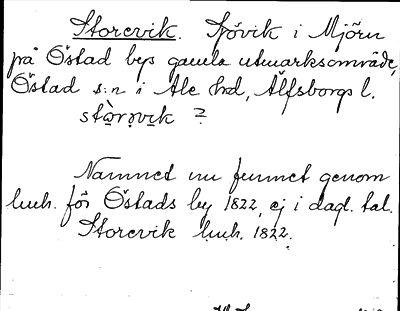 Storevik. Sjövik i Mjörn
på Östad bys gamla utmarksområde,
Östad s:n i Ale hd, Älfsborgs l.
stò̤rǝvi̤k ?
Namnet nu funnet genom
lmh. för Östads by 1822, ej i dagl. tal.
Storevik lmh. 1822.